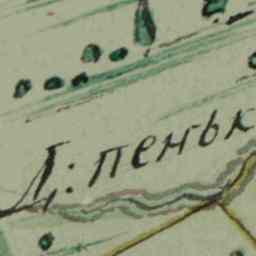 Д: пеньк